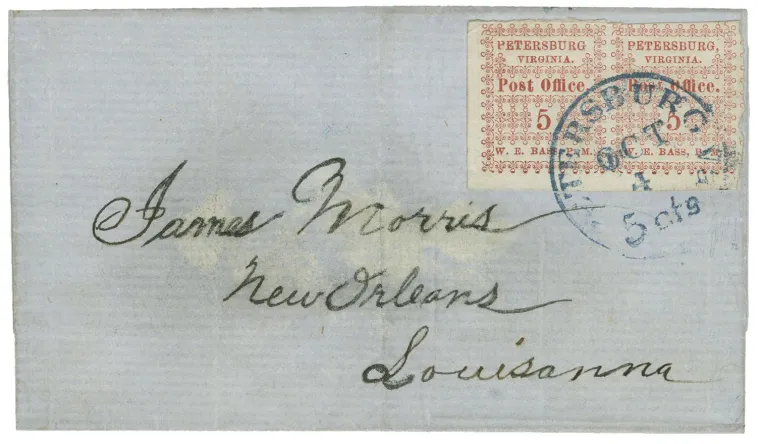 PETERSBURG
VIRGINIA.
Post Office.
5
W. E. BASS, P.M.
PETERSBURG,
VIRGINIA.
Post Office.
5
W. E. BASS,
ETERSBURG
OCT
4
5 cts
James Morris
New Orleans
Louisanna